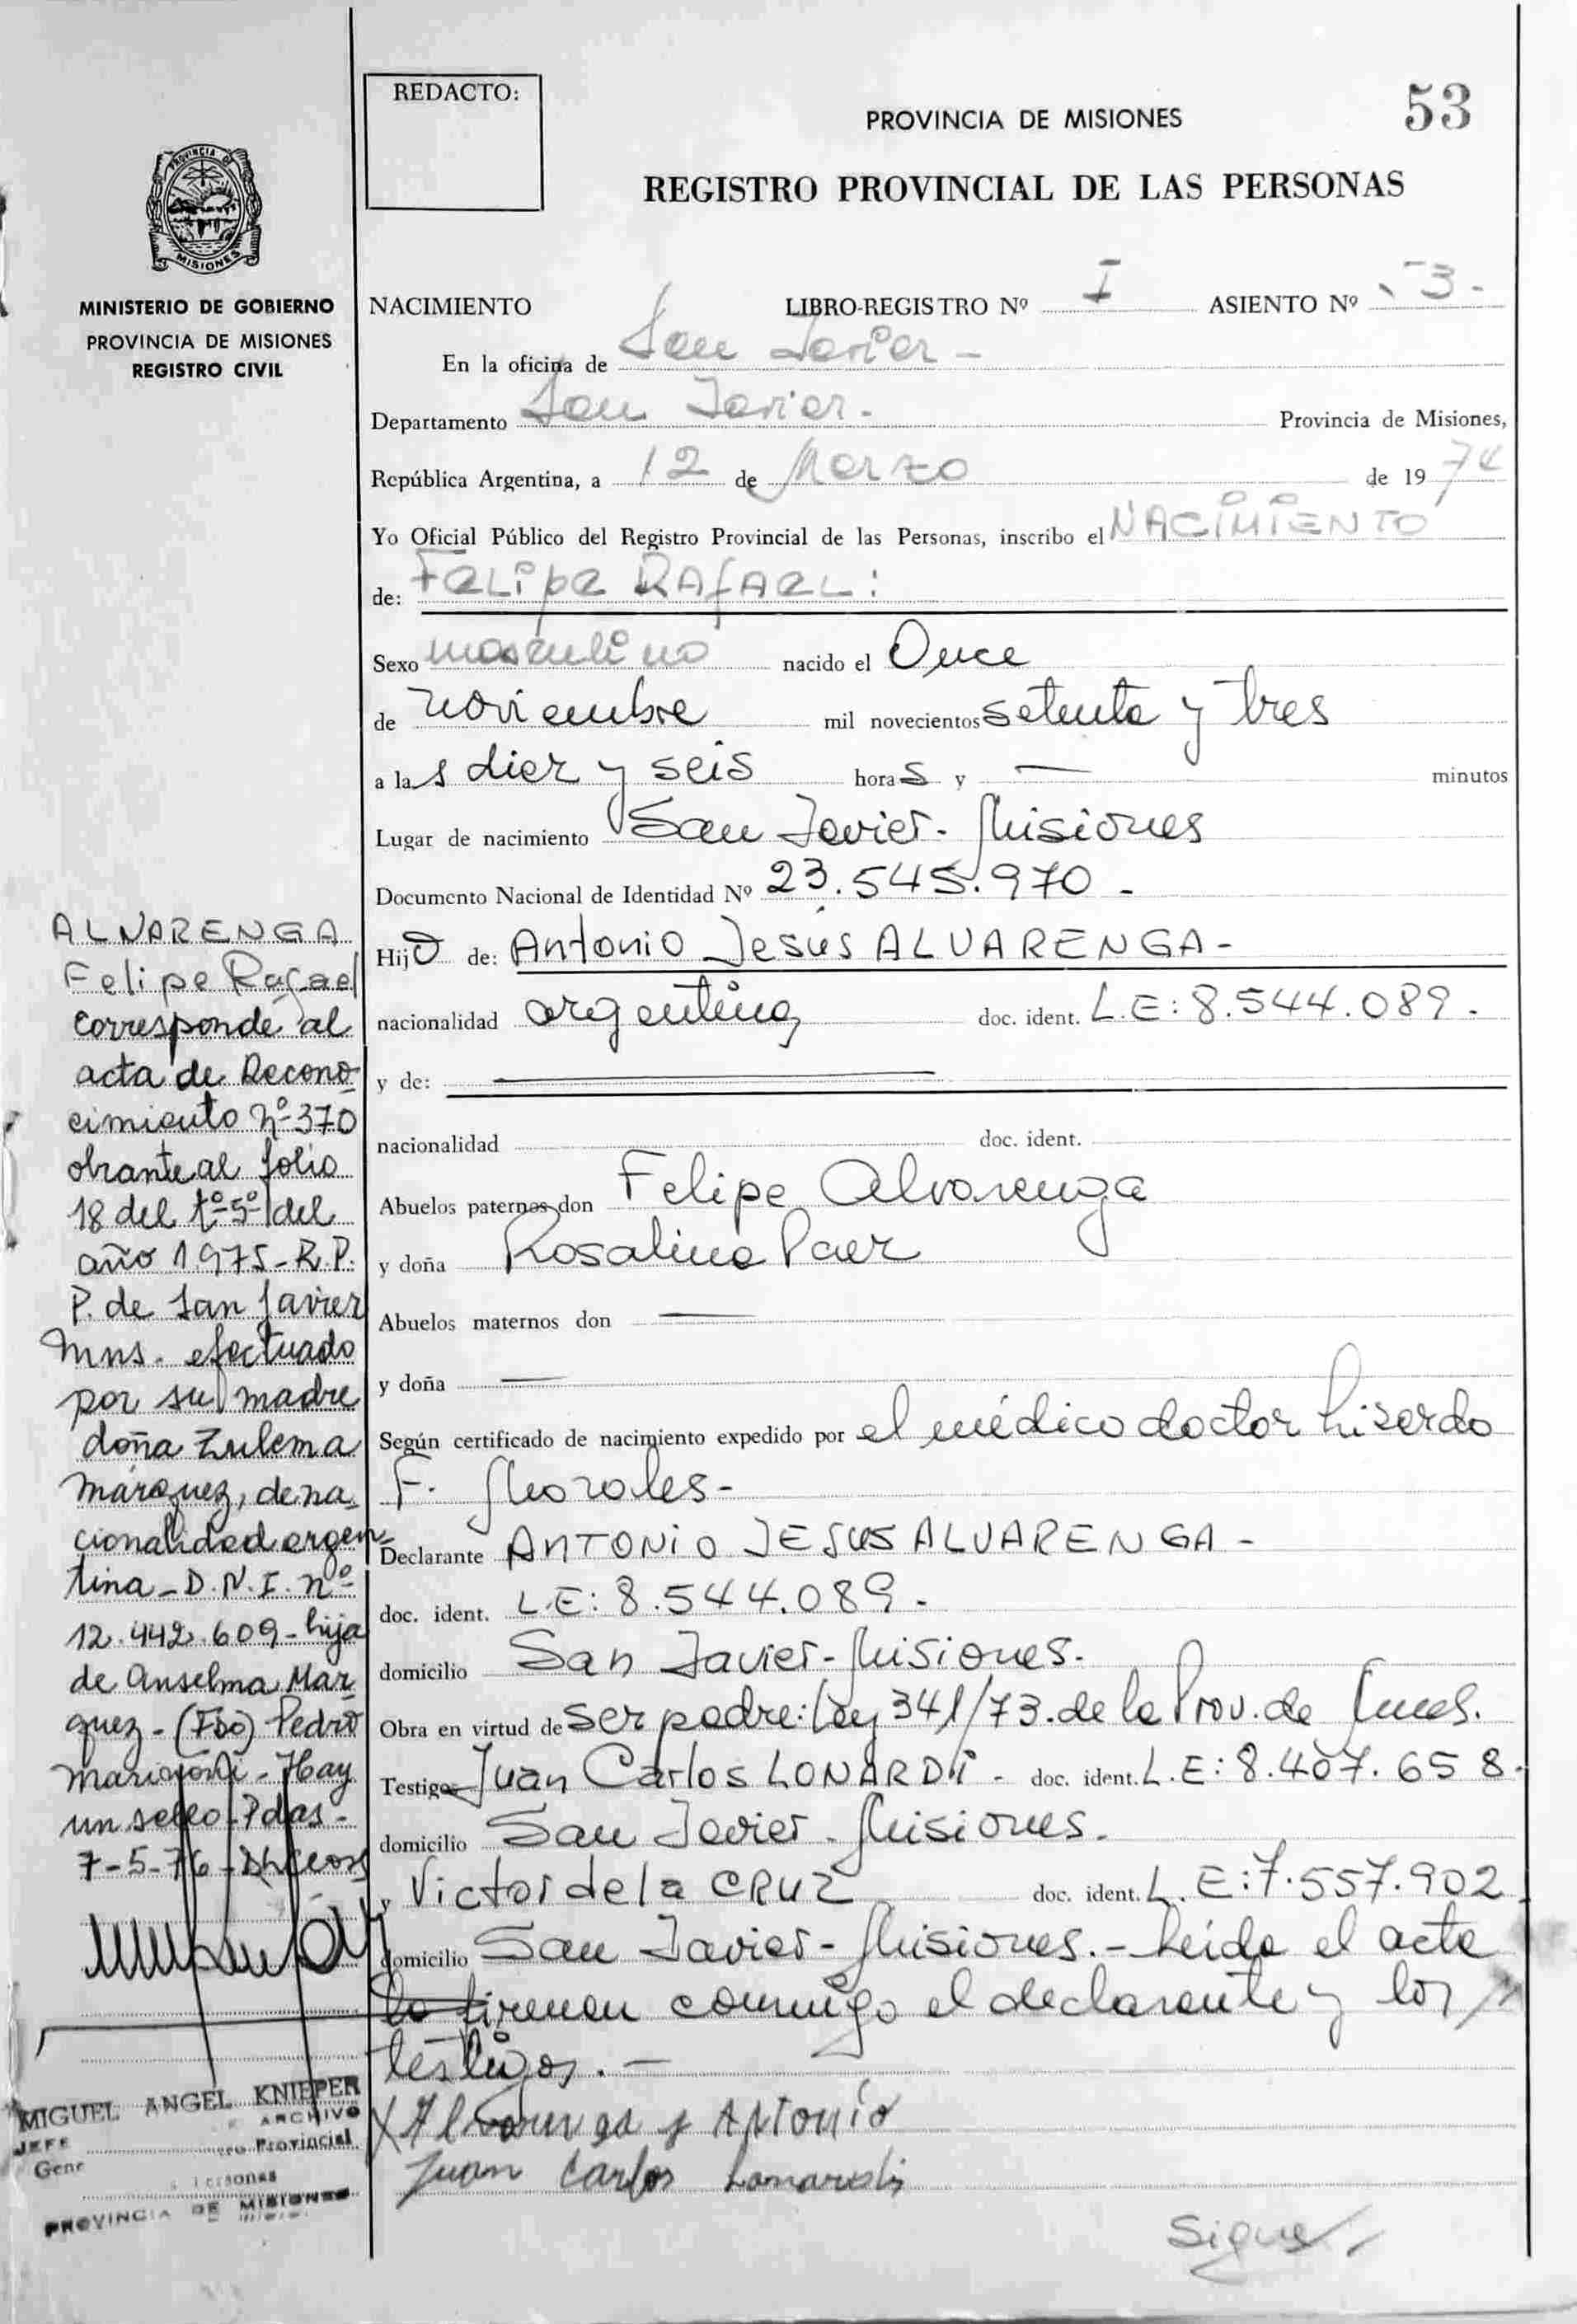 REDACTO:
53
PROVINCIA DE MISIONES
REGISTRO PROVINCIAL DE LAS PERSONAS
PROVINCIA DE
MISIONES
MINISTERIO DE GOBIERNO
PROVINCIA DE MISIONES
REGISTRO CIVIL
NACIMIENTO LIBRO-REGISTRO Nº I ASIENTO Nº 53.-
En la oficina de San Javier -
Departamento San Javier. Provincia de Misiones,
República Argentina, a 12 de Marzo de 1974
Yo Oficial Público del Registro Provincial de las Personas, inscribo el NACIMIENTO
de: Felipe RAfAeL:
Sexo masculino nacido el Once
de noviembre mil novecientos setenta y tres
a las diez y seis horas y — minutos
Lugar de nacimiento San Javier - Misiones
Documento Nacional de Identidad Nº 23.545.970 -
Hijo de: Antonio Jesús ALVARENGA -
nacionalidad argentina doc. ident. L.E: 8.544.089.
y de: —
nacionalidad doc. ident.
Abuelos paternos don Felipe Alvarenga
y doña Rosalina Paez
Abuelos maternos don —
y doña —
Según certificado de nacimiento expedido por el médico doctor Lisardo
F. Morales -
Declarante ANTONIO JESUS ALVARENGA -
doc. ident. L.E: 8.544.089 -
domicilio San Javier - Misiones.
Obra en virtud de ser padre: Ley 341/73. de la Prov. de Mnes.
Testigos Juan Carlos LONARDI - doc. ident. L.E: 8.407.658.
domicilio San Javier - Misiones.
y Victor de la CRUZ doc. ident. L.E: 7.557.902
domicilio San Javier - Misiones. - Leída el acta
la firman conmigo el declarante y los
testigos. —
X Alvarenga J Antonio
Juan Carlos Lonardi
Sigue/
ALVARENGA
Felipe Rafael
corresponde al
acta de Recono-
cimiento nº 370
obrante al folio
18 del tº 5º del
año 1975 - R.P.
P. de San Javier
Mns. efectuado
por su madre
doña Zulema
Márquez, de na-
cionalidad argen-
tina - D.N.I. nº
12.442.609 - hija
de Anselma Mar-
quez - (Fdo) Pedro
Hay
un sello - Pdas -
7-5-76 -
MIGUEL ANGEL KNIEPER
JEFE ARCHIVO
Gene Provincial
Personas
PROVINCIA DE MISIONES